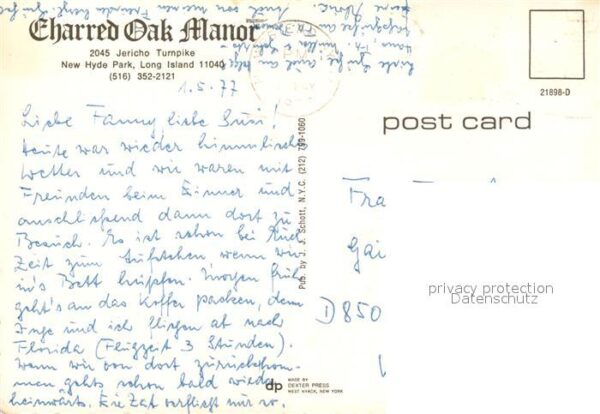 Charred Oak Manor
2045 Jericho Turnpike
New Hyde Park, Long Island 11040
(516) 352-2121
1.5.77
Liebe Fanny, liebe Susi!
Heute war wieder himmlisches
Wetter und wir waren mit
Freunden beim Dinner und
anschließend dann dort zu
Besuch. Es ist schon bei Euch
Zeit zum Aufstehen, wenn wir
in's Bett hüpfen. Morgen früh
geht's an das Koffer packen, denn
Inge und ich fliegen ab nach
Florida (Flugzeit 3 Stunden).
Wenn wir von dort zurückkom-
men gehts schon bald wieder
heimwärts. Die Zeit verfliegt nur so.
Pub. by J. J. Schott, N.Y.C. (212) 799-1060
dp
MADE BY
DEXTER PRESS
WEST NYACK, NEW YORK
21898-D
post card
Fra
Gai
D 850
privacy protection
Datenschutz